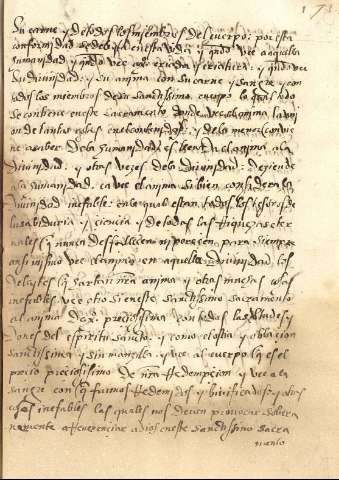 su carne y de todos los miembros del cuerpo: por esta
conformidad se debe en esta vida y quando vee aquella
humanidad y quando vee criada y criatura: y quando vee
su divinidad: y su anima con su carne y sangre y con
todos los miembros de su sanctissimo cuerpo lo qual todo
se contiene en este sacramento donde vee el anima la union
de tantas cosas en el contenidas: y de la
de la humanidad es levantada el anima a la
divinidad: y otras vezes de la divinidad: deciende
a la humanidad. ca vee el anima si bien considera la
divinidad inefable: en la qual estan todos los tesoros de
la sabiduria y ciencia y de todas las riquezas eter
nales que nunca desfallecen ni perecen para siempre
ansimismo vee tambien en aquella divinidad los
deleytes que hartan nra anima y otras muchas cosas
inefables. vee otro si en este sanctissimo sacramento
el anima de xpo preciosissima con todas las virtudes y
dones del espiritu sancto: y como es hostia y oblacion
sanctissima y sin manzilla. y vee al cuerpo que es el
precio preciosissimo de nra Redempcion y vee a la
sangre con que fuimos Redemidos y bivificados: y otras
cosas inefables las quales nos deven provocar sobera
namente a Reverenciar a dios en este sanctissimo sacra
mento